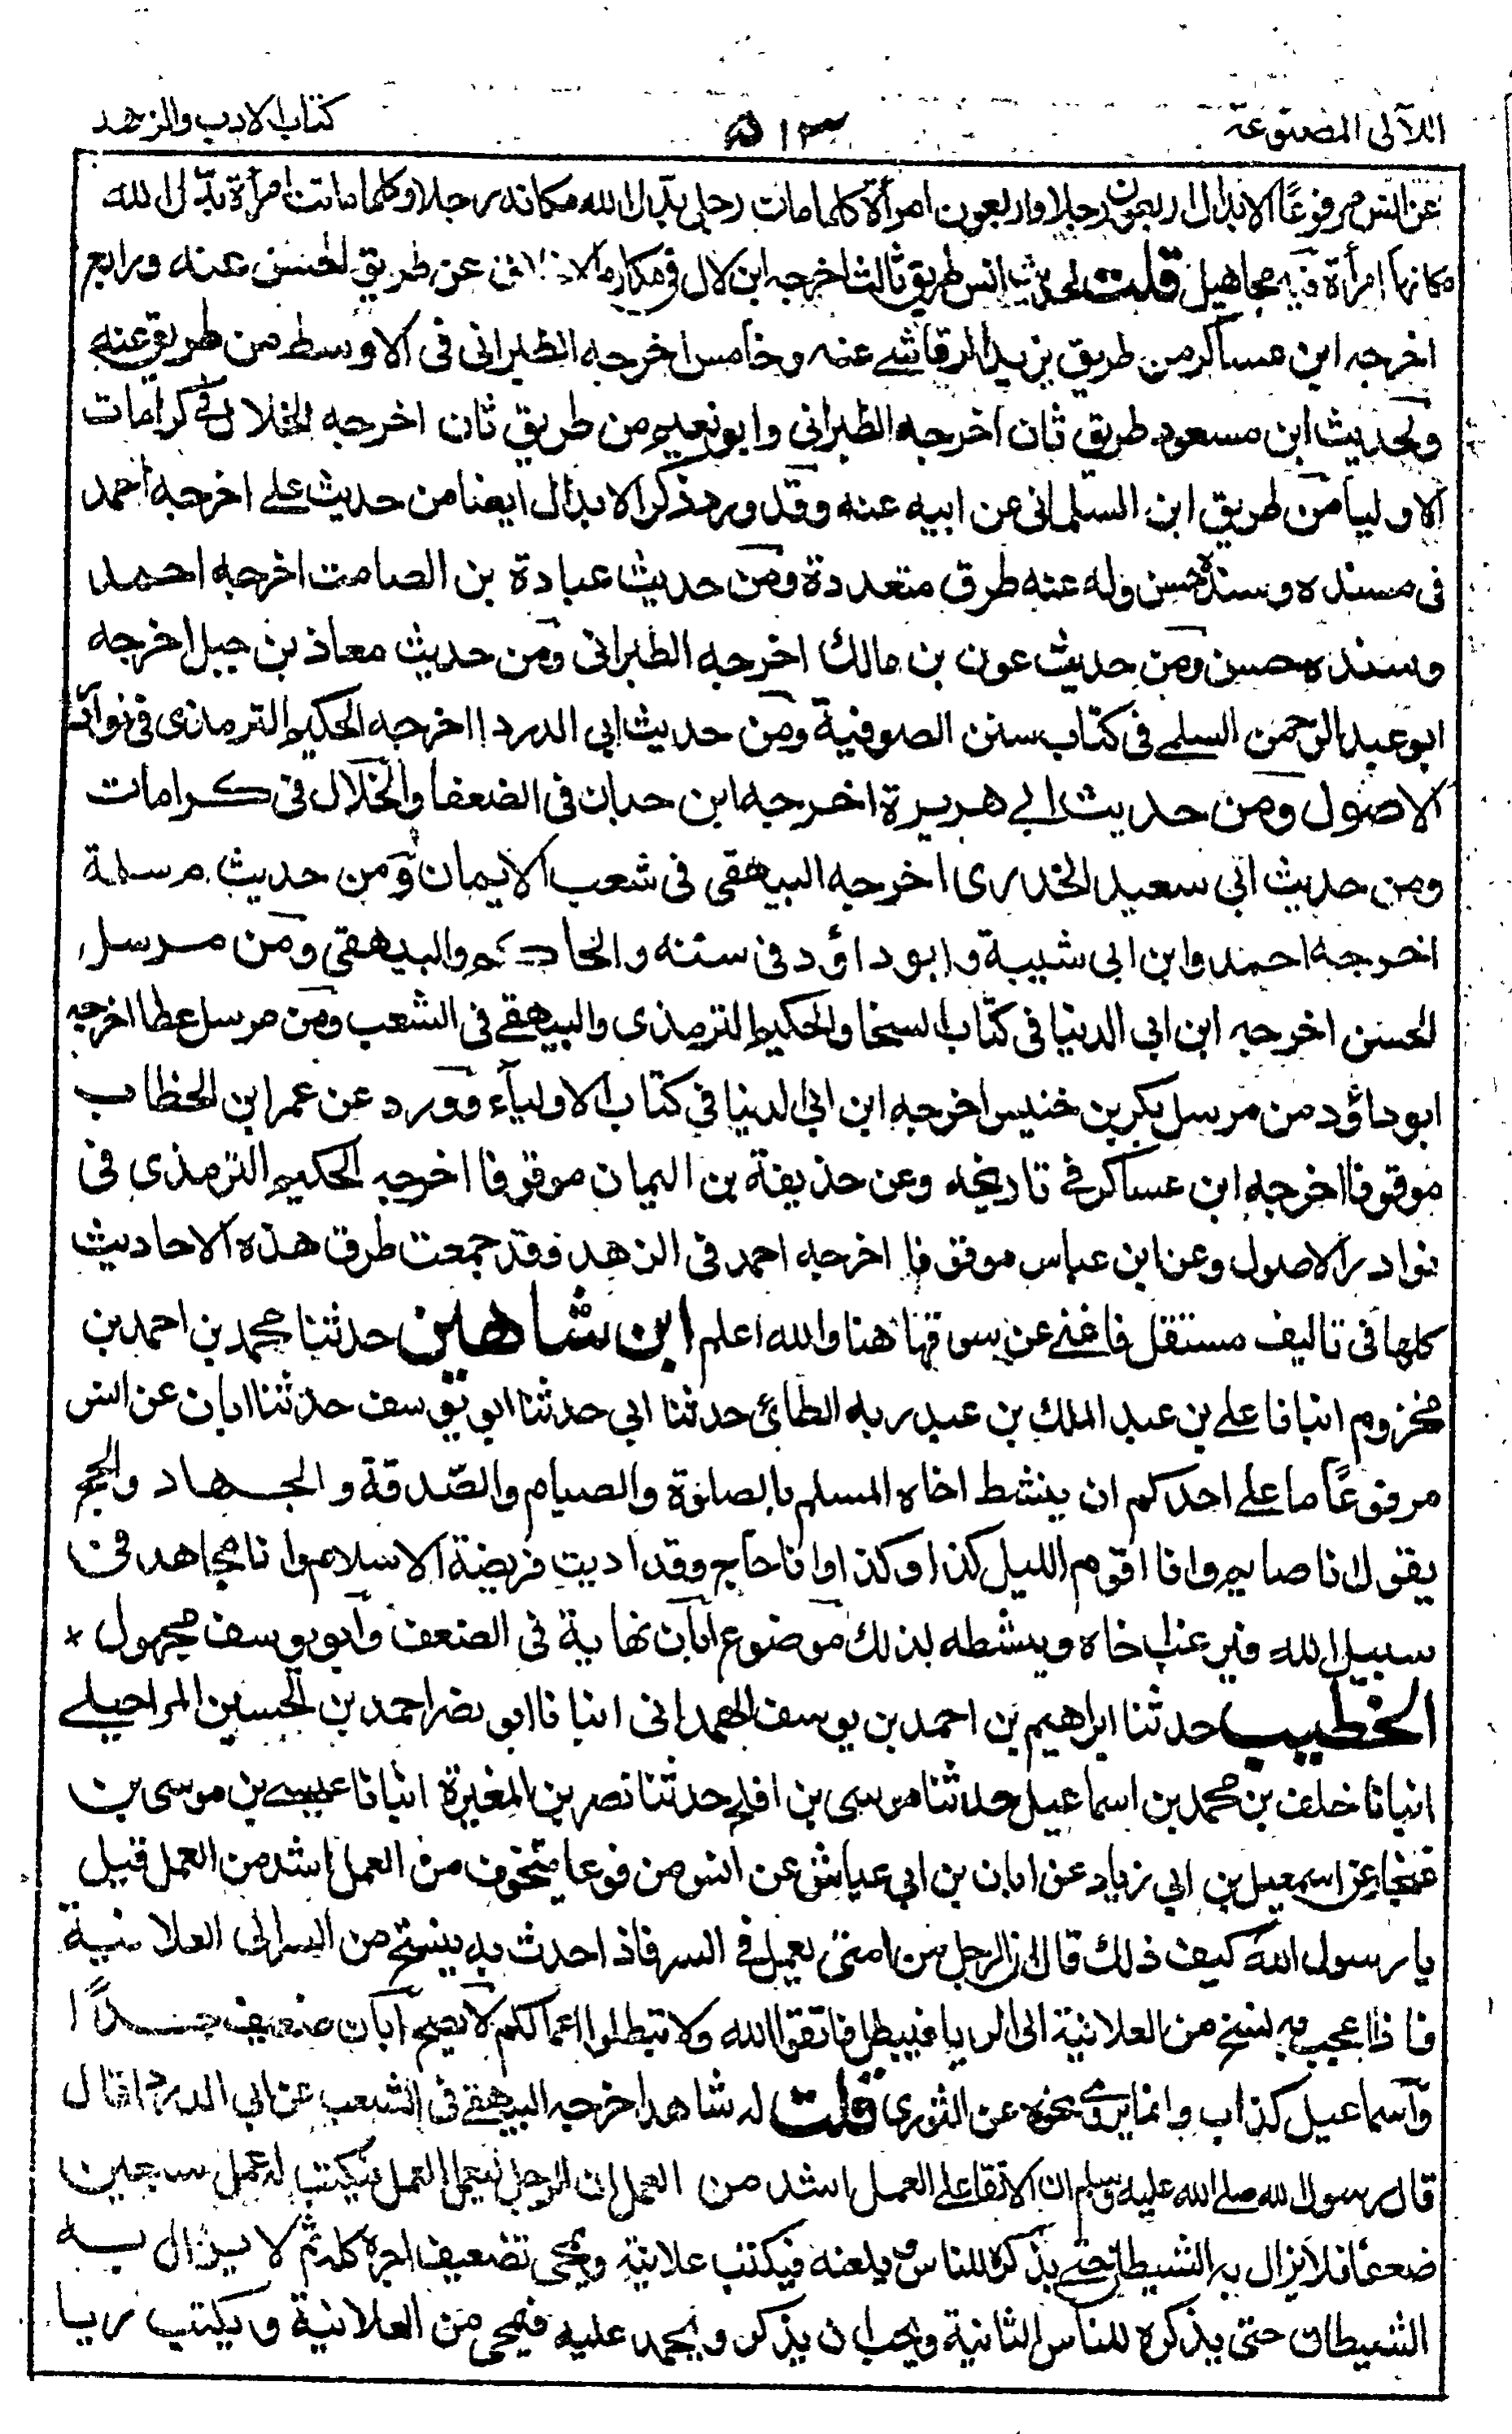 اللآلى المصنوعة
٥١٣
كتاب الادب والزهد
عن انس مرفوعًا الابدال اربعون رجلا واربعون امرأة كلما مات رجل بدل الله مكانه رجلا وكلما ماتت امرأة بدل الله
مكانها امرأة فيه مجاهيل قلت لحديث انس طريق ثالث اخرجه ابن لال فى مكارم الاخلاق عن طريق الحسن عنه ورابع
اخرجه ابن عساكر من طريق يزيد الرقاشے عنه وخامس اخرجه الطبرانى فى الاوسط من طريق عنه
ولحديث ابن مسعود طريق ثان اخرجه الطبرانى وابو نعيم من طريق ثان اخرجه الخلال فى كرامات
الاوليا من طريق ابن السلمانى عن ابيه عنه وقد ورد ذكر الابدال ايضا من حديث علے اخرجه احمد
فى مسنده وسنده حسن وله عنه طرق متعددة ومن حديث عبادة بن الصامت اخرجه احمد
وسنده حسن ومن حديث عون بن مالك اخرجه الطبرانى ومن حديث معاذ بن جبل اخرجه
ابو عبد الرحمن السلمے فى كتاب سنن الصوفية ومن حديث ابى الدردا اخرجه الحكيم الترمذى فى نوادر
الاصول ومن حديث ابے هريرة اخرجه ابن حبان فى الضعفا والخلال فى كرامات
ومن حديث ابى سعيد الخدرى اخرجه البيهقى فى شعب الايمان ومن حديث م سلمة
اخرجه احمد وابن ابى شيبة وابو داؤد فى سننه والحاكم والبيهقى ومن مرسل
الحسن اخرجه ابن ابى الدنيا فى كتاب السخا والحكيم الترمذى والبيهقے فى الشعب ومن مرسل عطا اخرجه
ابو داؤد من مرسل بكر بن خنيس اخرجه ابن ابى الدنيا فى كتاب الاولياء وورد عن عمر ابن الخطاب
موقوفا اخرجه ابن عساكر فے تاريخه وعن حذيفة بن اليمان موقوفا اخرجه الحكيم الترمذى فى
نوادر الاصول وعن ابن عباس موقوفا اخرجه احمد فى الزهد وقد جمعت طرق هذه الاحاديث
كلها فى تاليف مستقل فاغنے عن سوقها هنا والله اعلم ابن شاهين حدثنا محمد بن احمد بن
مخزوم انبانا علے بن عبد الملك بن عبد ربه الطائ حدثنا ابى حدثنا ابو يوسف حدثنا ابان عن انس
مرفوعًا ما علے احدكم ان ينشط اخاه المسلم بالصلوة والصيام والصدقة والجهاد والحج
يقول انا صايم وانا اقوم الليل كذا وكذا وانا حاج وقد اديت فريضة الاسلام وانا مجاهد فى
سبيل الله فيرغب اخاه وينشطه بذلك موضوع ابان نهاية فى الضعف وابو يوسف مجهول *
الخطيب حدثنا ابراهيم بن احمد بن يوسف الهمدانى انبانا ابو نصر احمد بن الحسين المراحيلے
انبانا خلف بن محمد بن اسماعيل حدثنا موسى بن افلح حدثنا نصر بن المغيرة انبانا عيسے بن موسى بن
غنجار عن اسمعيل بن ابى زياد عن ابان بن ابى عياش عن انس مرفوعا التخوف من العمل اشد من العمل قيل
يا رسول الله كيف ذلك قال ان الرجل من امتى يعمل فے السر فاذا حدث به ينسخ من السر الى العلانية
فاذا اعجب به نسخ من العلانية الى الريا فيبطل فاتقوا الله ولا تبطلوا اعمالكم لا يصح ابان ضعيف جدًا
واسماعيل كذاب وانما يروى نحوه عن الثورى قلت له شاهد اخرجه البيهقے فى الشعب عن ابى الدردا قال
قال رسول الله صلے الله عليه وسلم ان الاتقاء على العمل اشد من العمل ان الرجل ليعمل العمل فيكتب له عمل سبعين
ضعفا فلا يزال به الشيطان حتے يذكره للناس ويعلنه فيكتب علانية ويمحى تضعيف اجره كله ثم لا يزال به
الشيطان حتى يذكره للناس الثانية ويحب ان يذكر ويحمد عليه فيمحى من العلانية ويكتب ريا